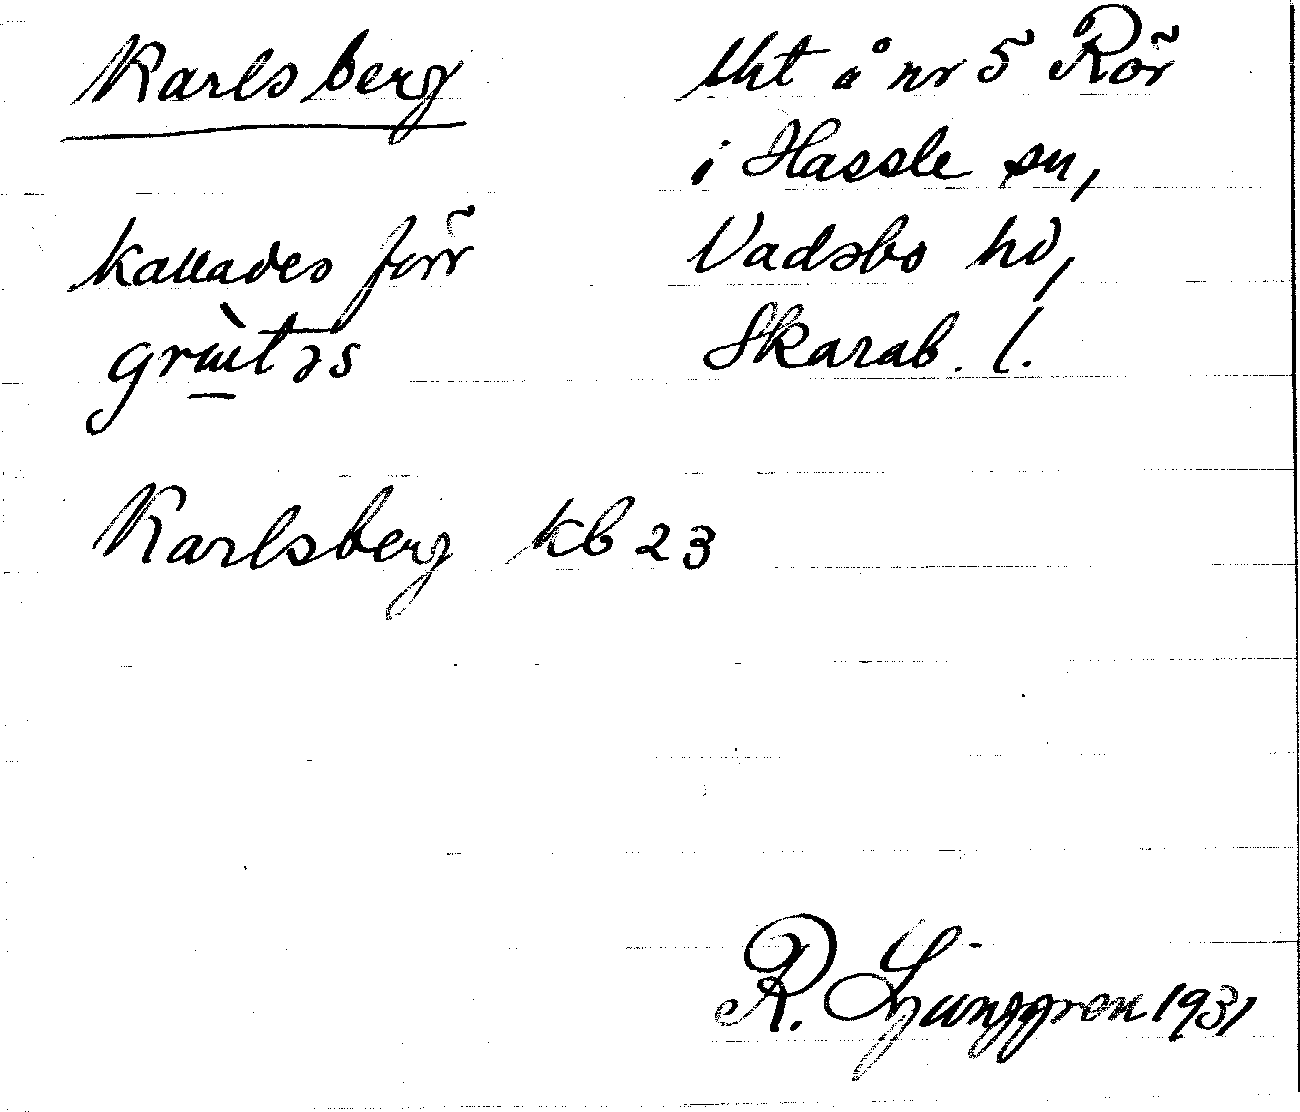 Karlsberg
kallades förr
Lht å nr 5 Rör
i Hassle sn,
Vadsbo hd,
Skarab. l.
Karlsberg kb 23
R. Ljunggren 1931